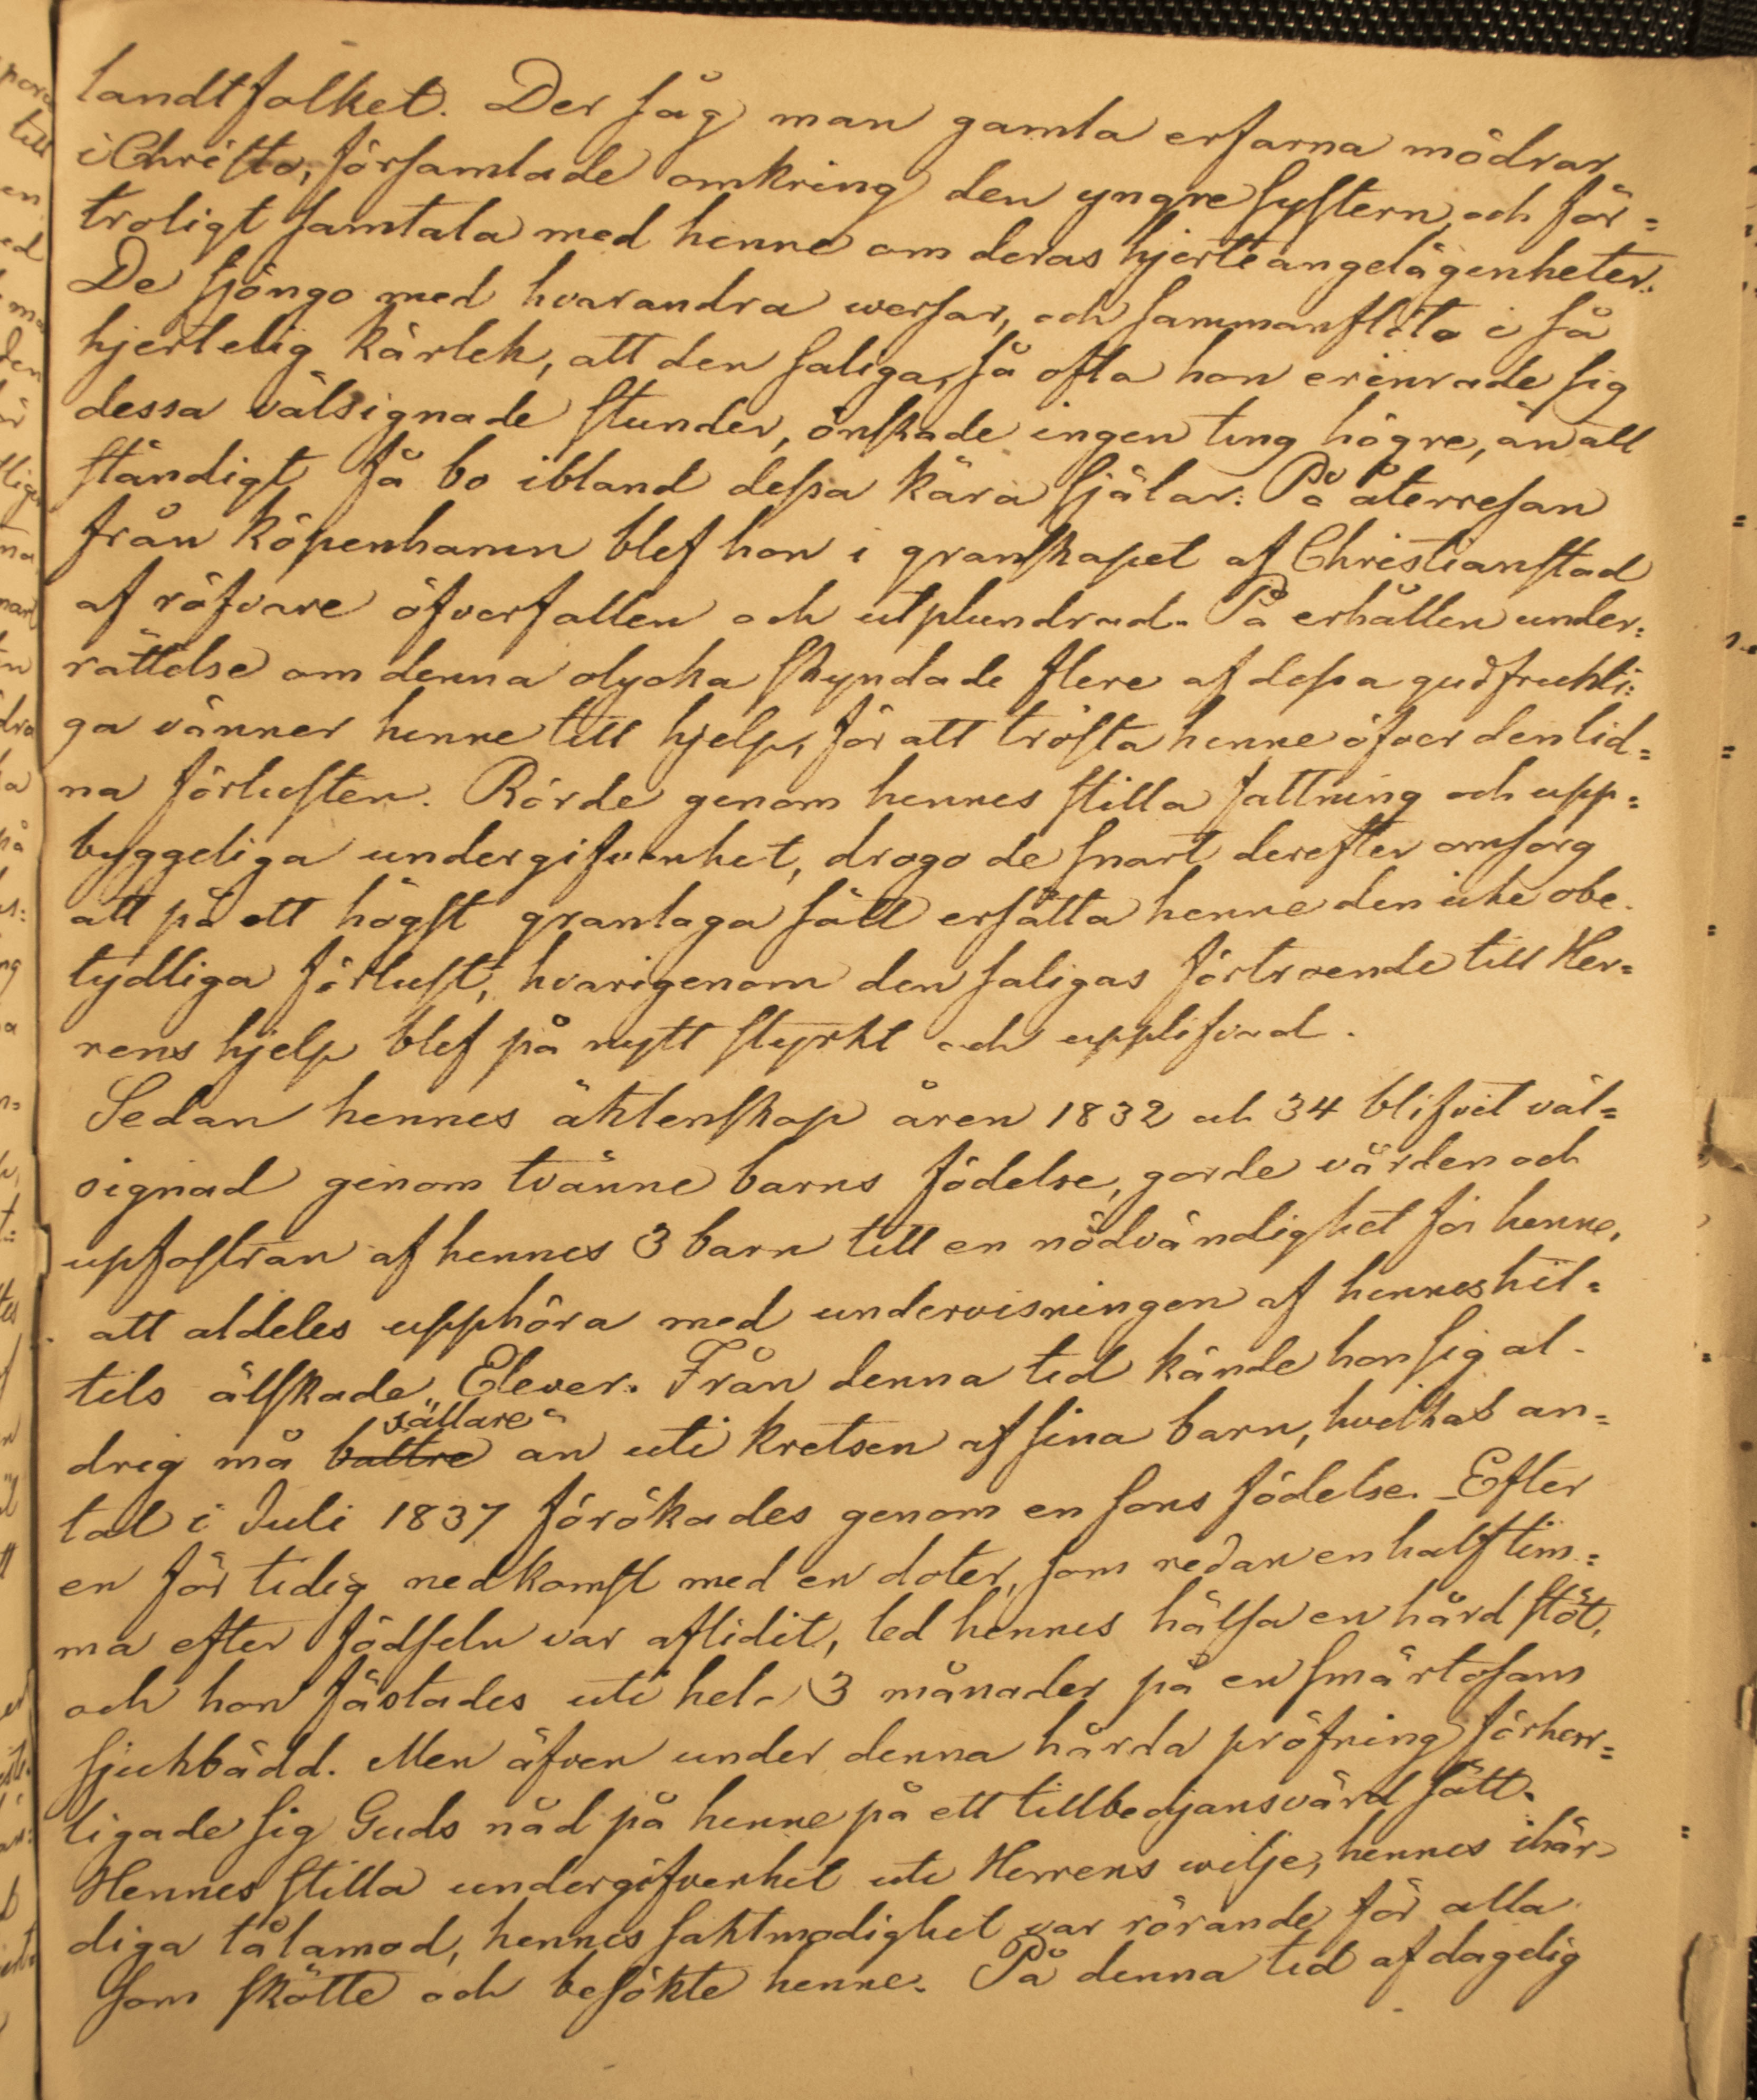 landtfolket. Der såg man gamla erfarna mödrar
i Christo, församlade omkring den yngre systern och för=
troligt samtala med henne om deras hjerteangelägenheter.
De sjöngo med hvarandra wersar, och sammanflöto i så
hjertelig kärlek, att den saliga, så ofta hon erinrade sig
dessa välsignade stunder, önskade ingen ting högre, än att
ständigt få bo ibland dessa kära själar. På återresan
från Köpenhamn blef hon i granskapet af Christianstad
af röfvare öfverfallen och utplundrad. På erhållen under=
rättelse om denna olycka skyndade flere af dessa gudfrukti=
ga vänner henne till hjelp, för att trösta henne öfver den lid=
na förlusten. Rörde genom hennes stilla fattning och upp=
byggeliga undergifvenhet, drogo de snart derefter omsorg
att på ett högst granlaga sätt ersätta henne den icke obe-
tydliga förlust, hvarigenom den saligas förtroende till Her=
rens hjelp blef på nytt styrkt och upplifvad.
Sedan hennes äktenskap åren 1832 och 34 blifvit väl=
signad genom tvänne barns födelse, gorde vården och
upfostran af hennes 3 barn till en nödvändighet för henne,
att aldeles upphöra med undervisningen af hennes hit=
tils älskade Elever. Från denna tid kände hon sig al-
drig må battre sällare än uti kretsen af sina barn, hvilkas an=
tal i Juli 1837 förökades genom en sons födelse. Efter
en för tidig nedkomst med en doter, som redan en half tim=
ma efter födseln var aflidit, led hennes hälsa en hård stöt,
och hon fästades uti hela 3 månader på en smärtosam
sjukbädd. Men äfven under denna hårda pröfning förherr=
ligade sig Guds nåd på henne på ett tillbedjansvärd sätt.
Hennes stilla undergifvenhet uti Herrens wilje, hennes ihär-
diga tålamod, hennes saktmodighet var rörande för alla
som skötte och besökte henne. På denna tid af daglig